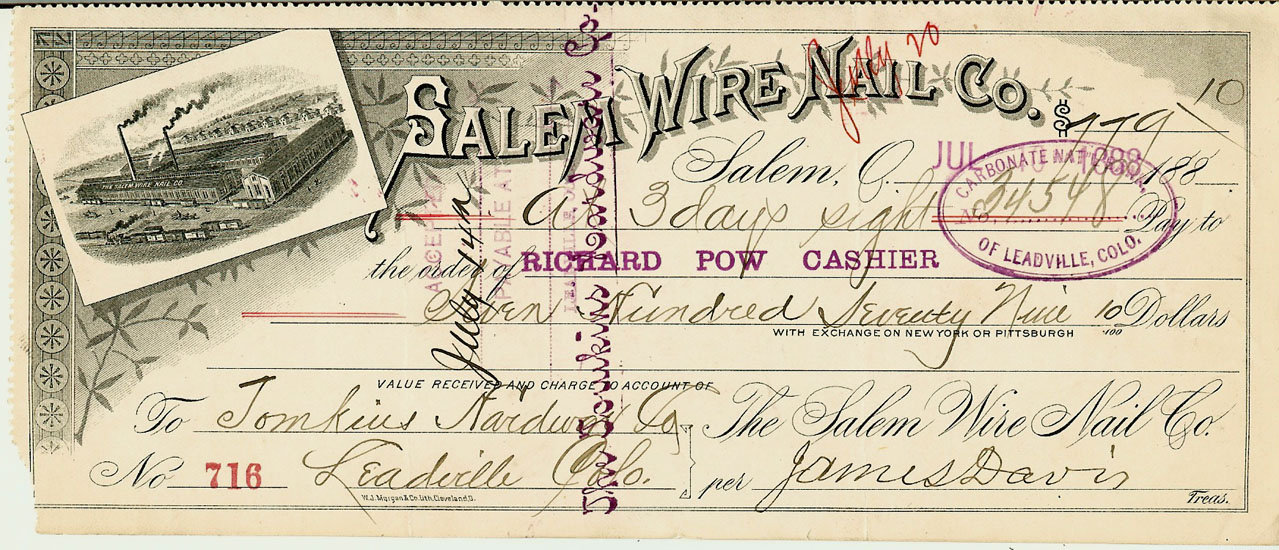 THE SALEM WIRE NAIL CO.
SALEM WIRE NAIL CO.
July 20
$779 10
Salem, O. JUL 10 1888 188
CARBONATE NAT'L BANK
No 24548
OF LEADVILLE, COLO.
At 3 days sight Pay to
the order of RICHARD POW CASHIER
Seven Hundred Seventy Nine 10/100 Dollars
WITH EXCHANGE ON NEW YORK OR PITTSBURGH
VALUE RECEIVED AND CHARGE TO ACCOUNT OF
To Tomkins Hardware Co
Leadville Colo.
No 716
The Salem Wire Nail Co.
per James Davis
Treas.
W.J. Morgan & Co. Lith. Cleveland, O.
ACCEPTED
July 14th
PAYABLE AT
LEADVILLE,
The Tomkins Hardware Co.